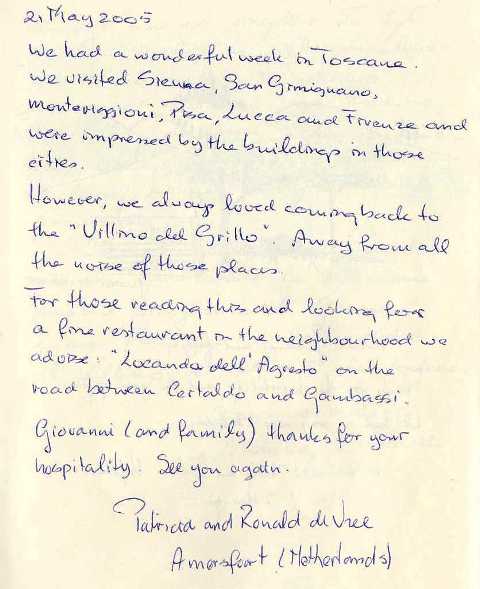 21 May 2005
We had a wonderful week in Toscane.
We visited Sienna, San Gimignano,
Monteriggioni, Pisa, Lucca and Firenze and
were impressed by the buildings in those
cities.
However, we always loved coming back to
the "Villino del Grillo". Away from all
the noise of those places.
For those reading this and looking for
a fine restaurant in the neighbourhood we
advise: "Locanda dell'Agresto" on the
road between Certaldo and Gambassi.
Giovanni (and family) thanks for your
hospitality. See you again.
Patricia and Ronald de Vree
Amersfoort (Netherlands)